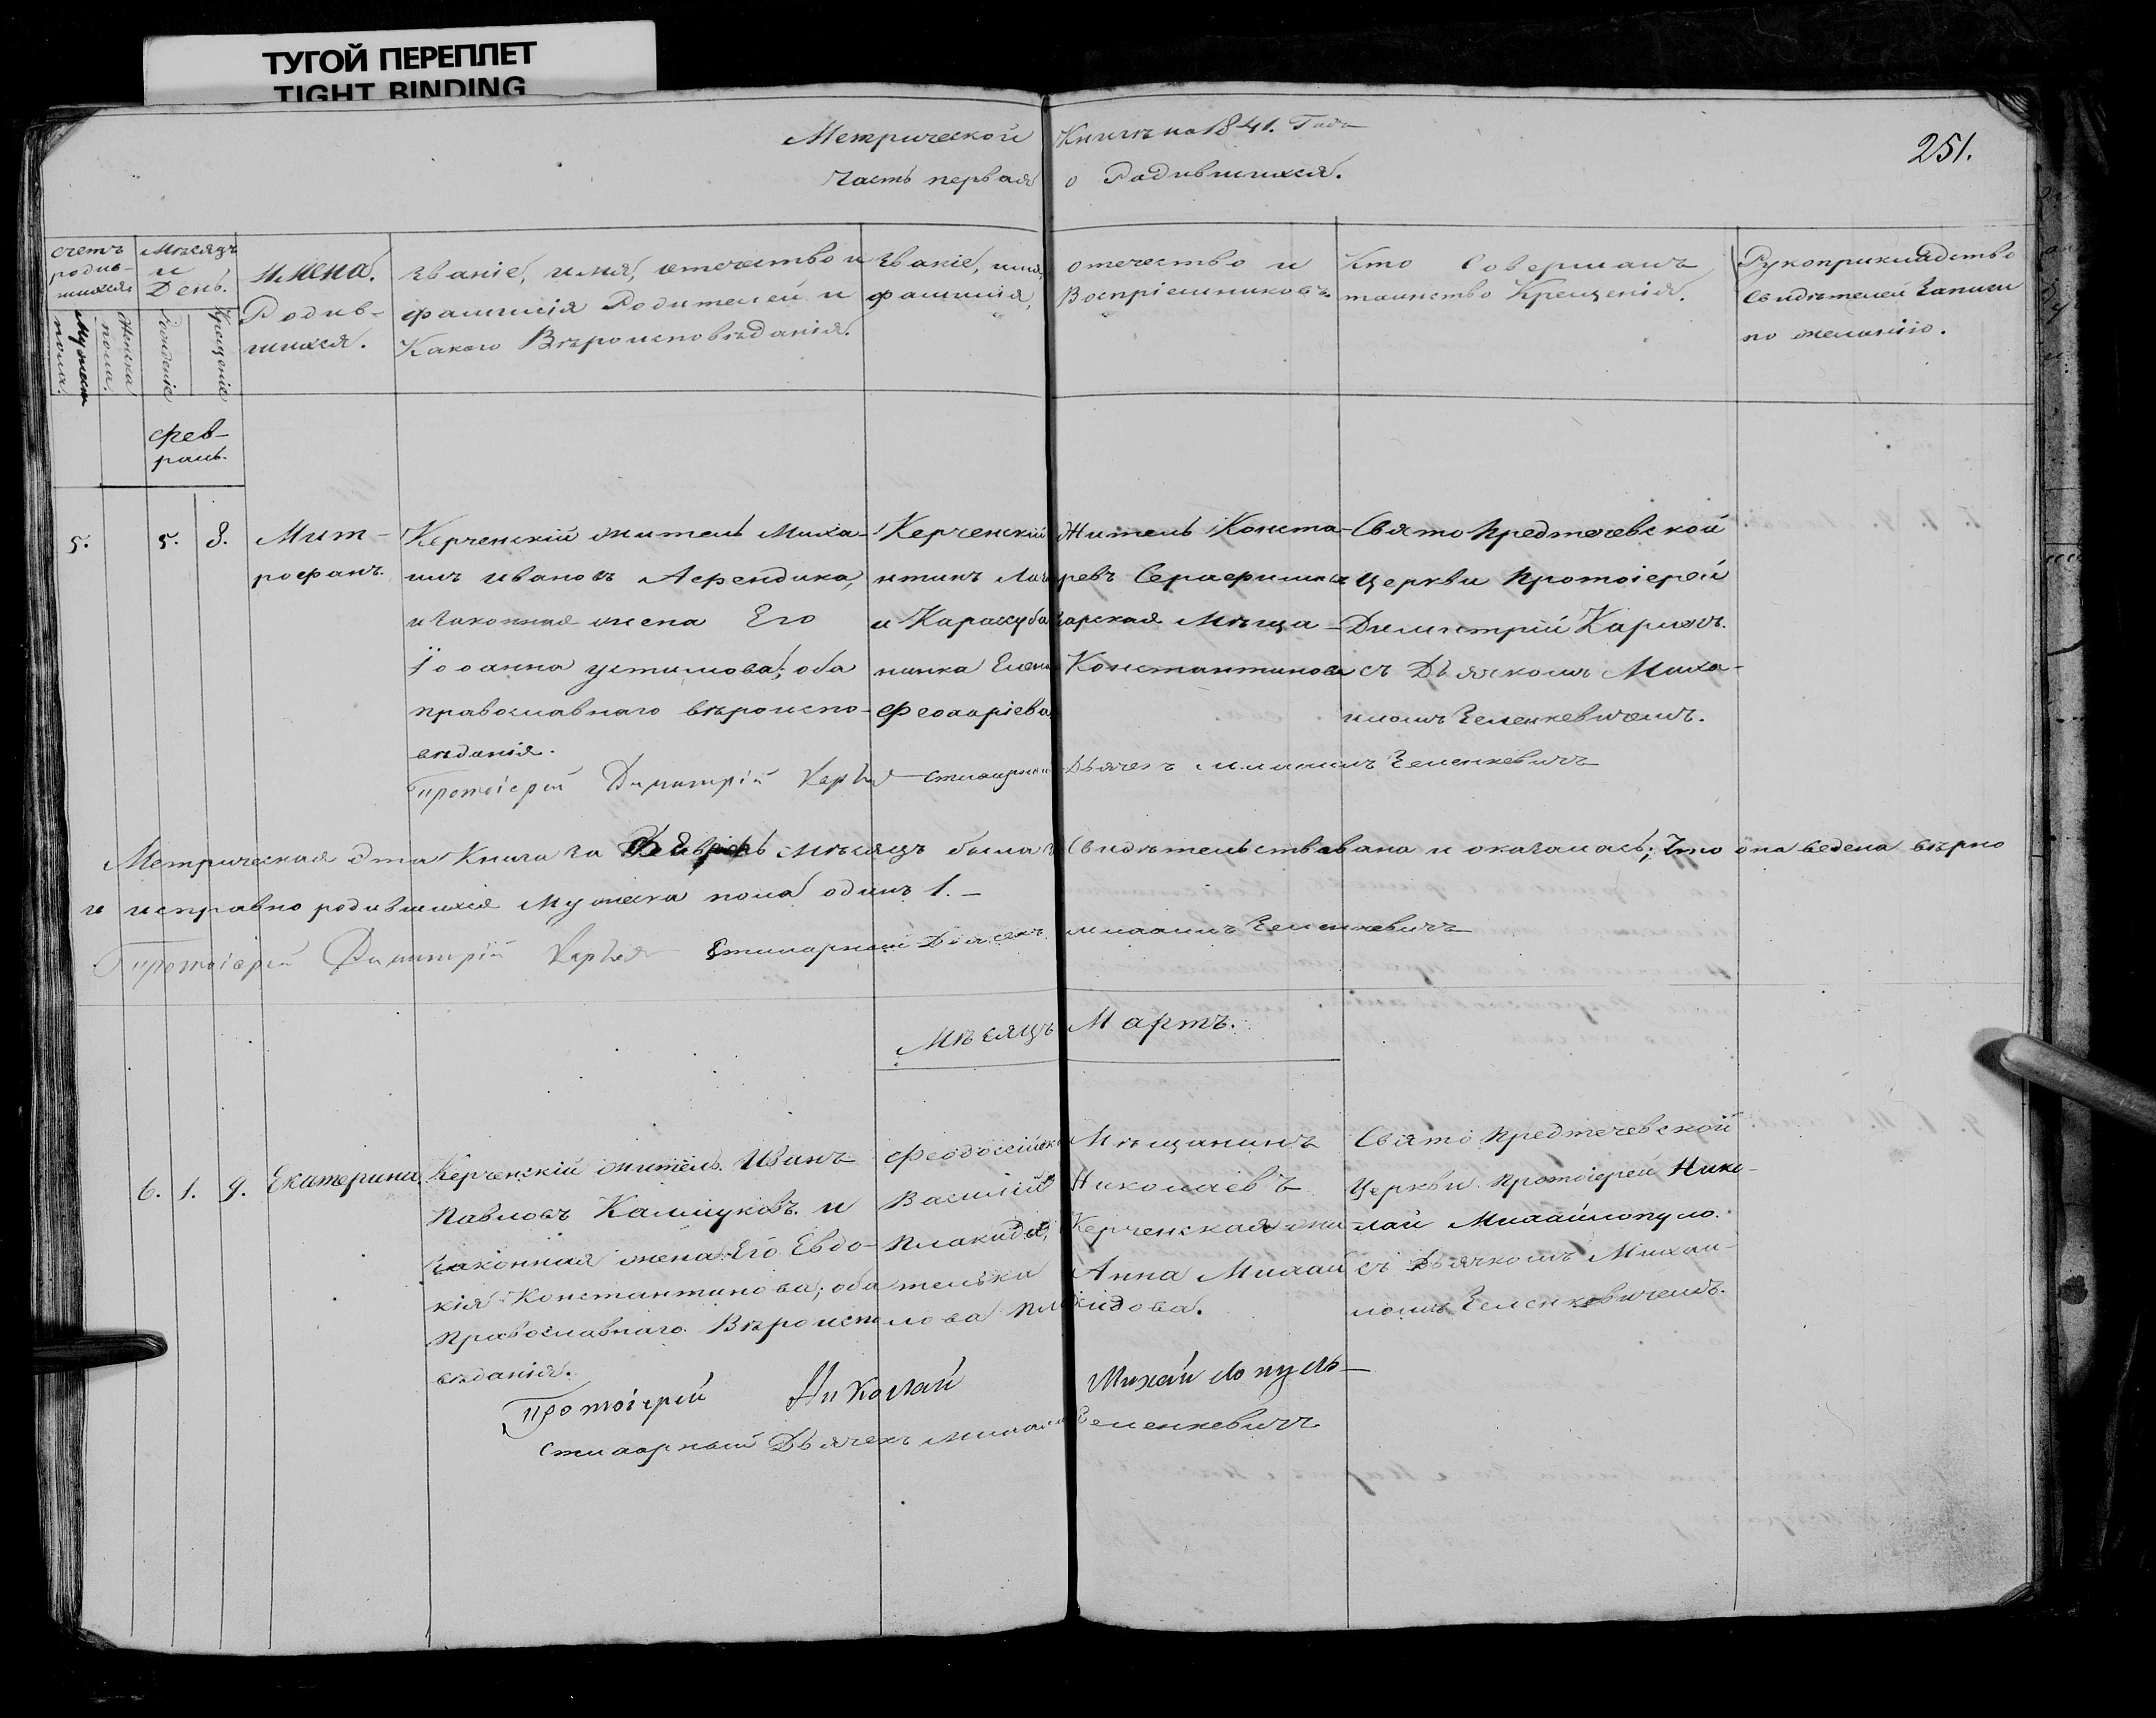 ТУГОЙ ПЕРЕПЛЕТ
TIGHT BINDING
251.
Метрической Книги на 1841. Годъ
Часть первая о Родившихся.
счетъ родив-шихся
Мужеска пола.
Женска пола.
Мѣсяцъ и День.
Рожденіе
Крещеніе
Имена.
Родив-
шихся.
Званіе, имя, отечество и
фамилія Родителей и
Какого Вѣроисповѣданія.
Званіе, имя, отечество и
фамилія, Воспріемниковъ
Кто Совершалъ
таинство Крещенія.
Рукоприкладство
свидѣтелей записи
по желанію.
Фев-
раль.
5. 5. 8.
Мит-
рофанъ.
Керченскій житель Миха-
илъ Ивановъ Афендика,
и законная жена Его
Іоанна Устимова; оба
православнаго вѣроиспо-
вѣданія.
Керченскій Житель Конста-
нтинъ Серафимовъ
и Карасубазарская Мѣща-
нинка Елена Константинова
Феодоріева
Свято Предтечевской
Церкви Протоіерей
Димитрій Карѣя
съ Дьячкомъ Миха-
иломъ Зеленкевичемъ.
Протоіерей Димитрій Карѣя Стихарный Дьячекъ Михаилъ Зеленкевичъ
Метрическая эта Книга за Февраль мѣсяцъ была свидѣтельствована и оказалась; что она ведена вѣрно
и исправно родившихся Мужеска пола одинъ 1.—
Протоіерей Димитрій Карѣя Стихарный Дьячекъ Михаилъ Зеленкевичъ
Мѣсяцъ Мартъ.
6. 1. 9. Екатерина
Керченскій житель Иванъ
Павловъ Калицуковъ и
законная жена Его Евдо-
кія Константинова; оба
Православнаго Вѣроиспо
вѣданія.
Феодосійскій Мѣщанинъ
Василій Николаевъ
Плакида, Керченская жи-
телька Анна Михаи
лова Плакидова.
Свято Предтечевской
Церкви Протоіерей Нико-
лай Михайлопуло.
съ Дьячкомъ Михаи-
ломъ Зеленкевичемъ.
Протоіерей Николай Михайлопуль
Стихарный Дьячекъ Михаилъ Зеленкевичъ